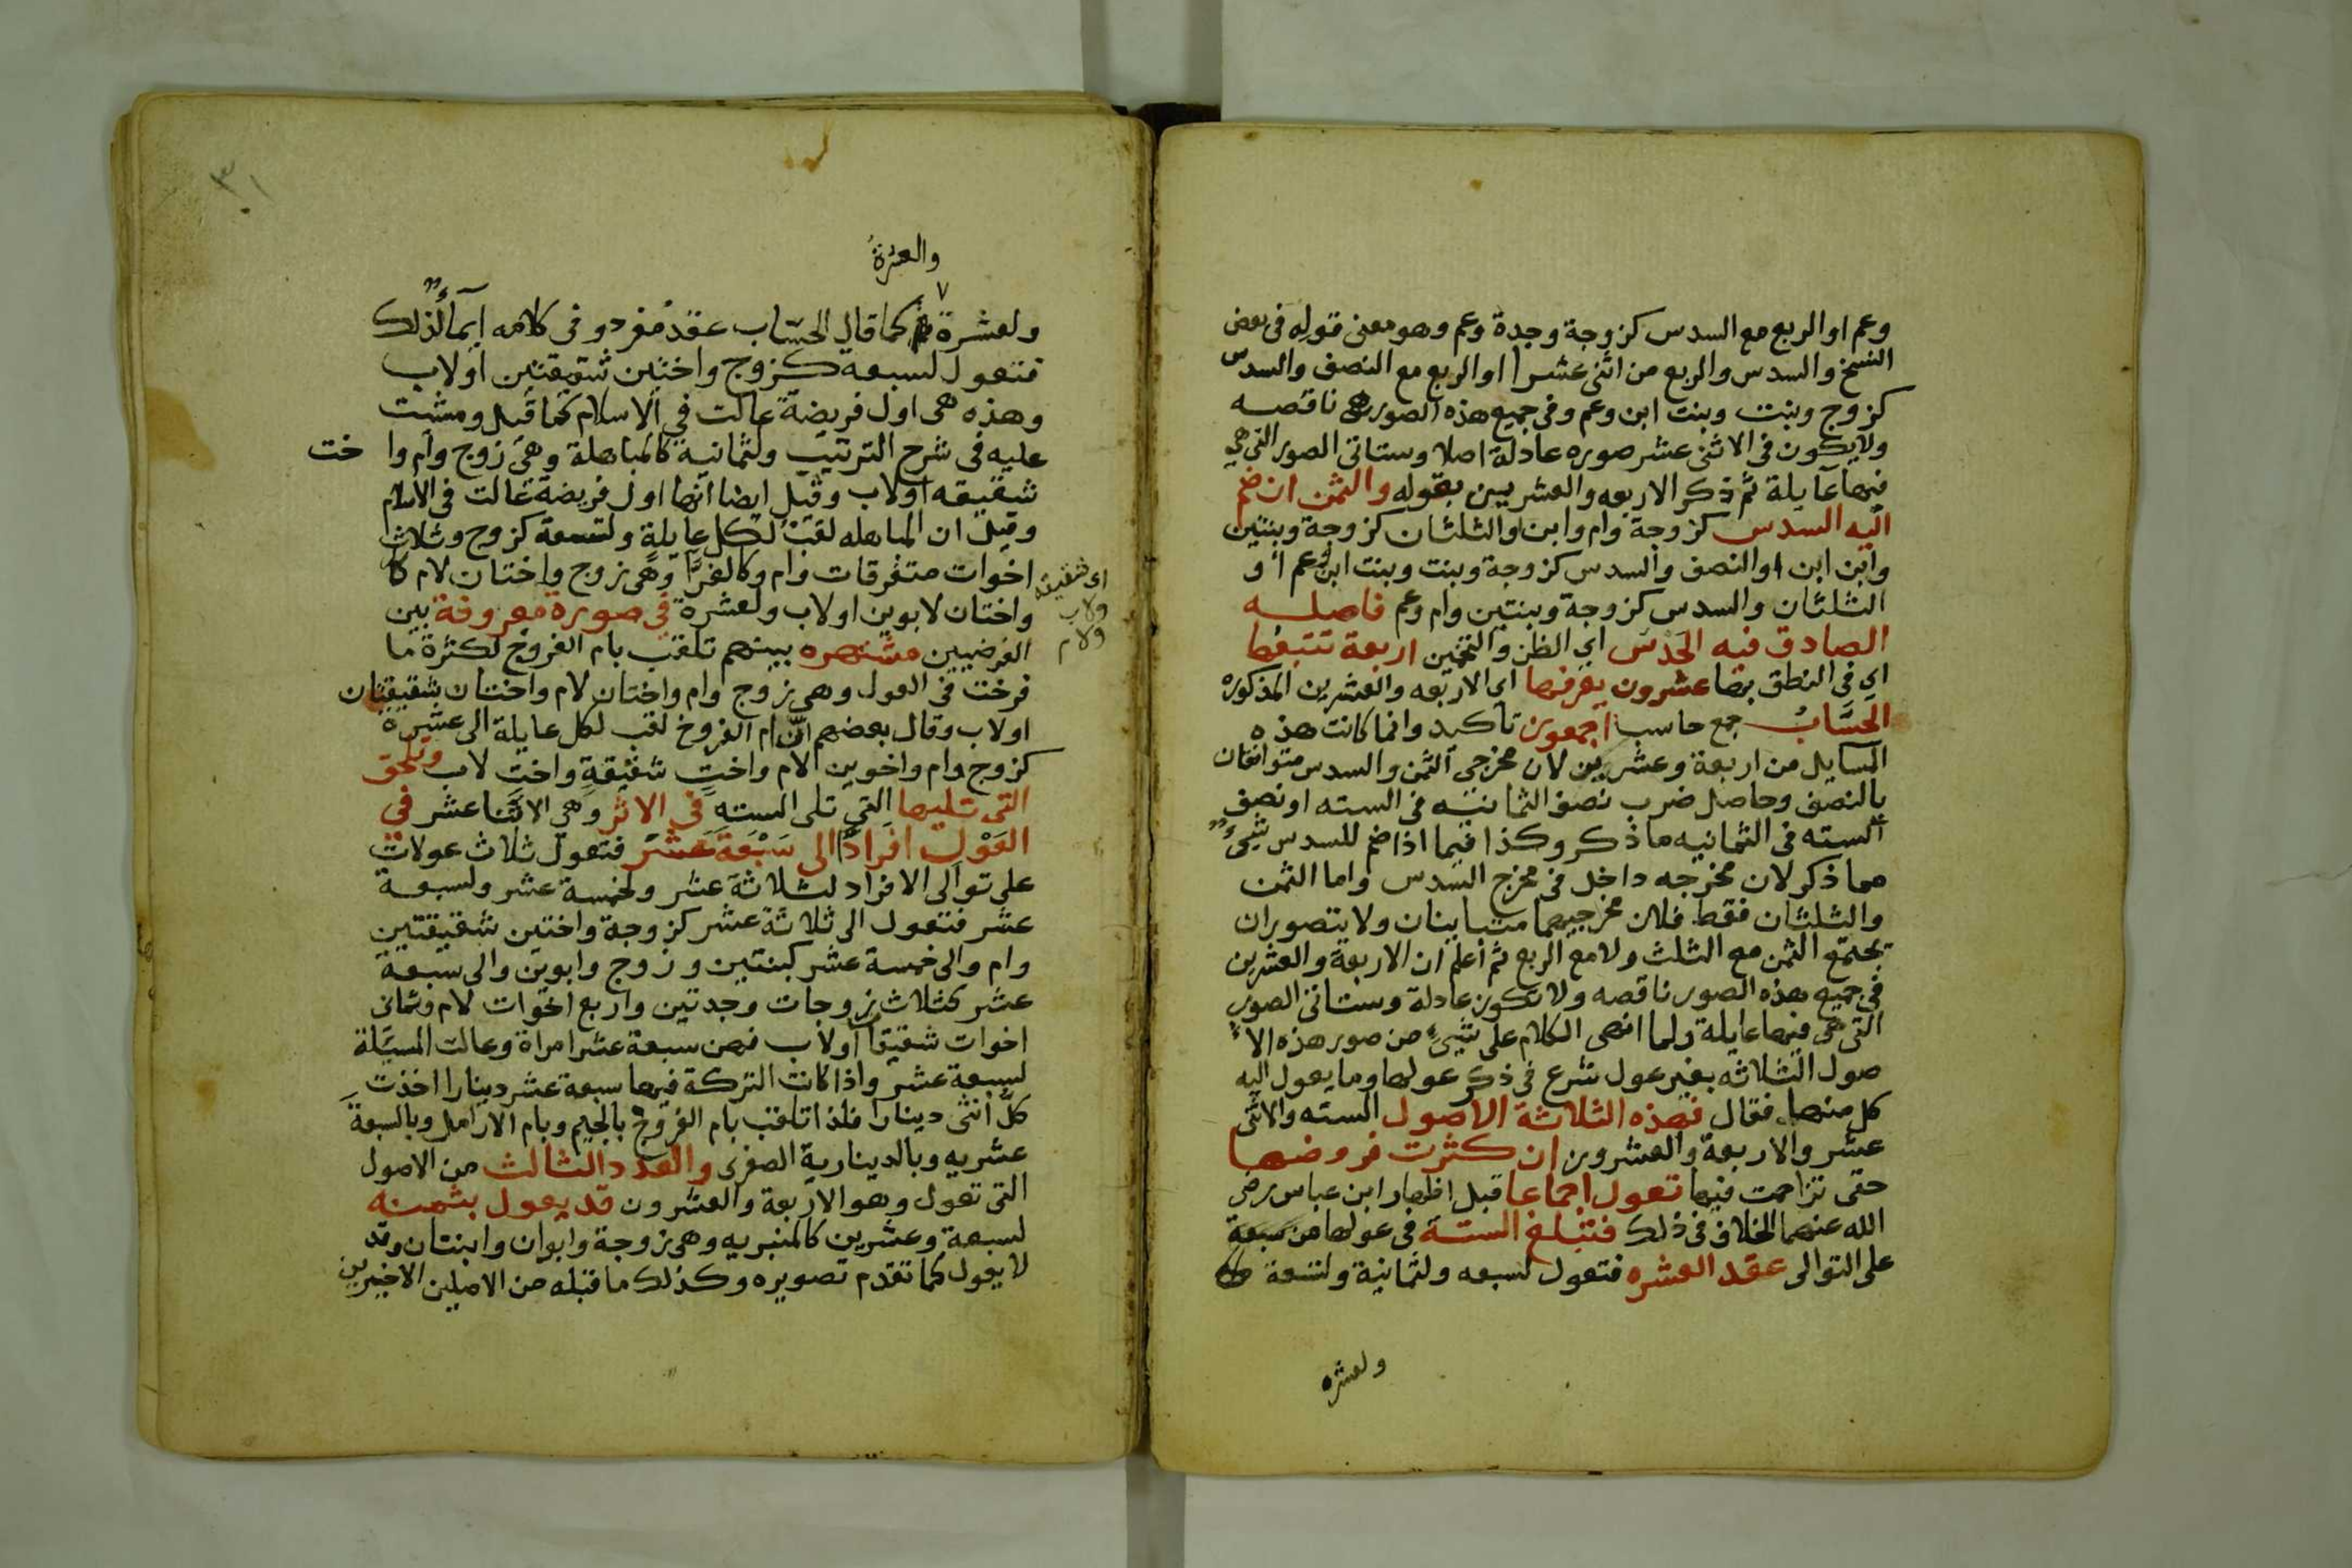 وعم او الربع مع السدس كزوجة وجدة وعم وهو معنى قوله فى بعض
النسخ والسدس والربع من اثنى عشرا او الربع مع النصف والسدس
كزوج وبنت وبنت ابن وعم وفى جميع هذه الصور هى ناقصه
ولا يكون فى الاثنى عشر صوره عادلة اصلا وستاتى الصور التى هى
فيها عايلة ثم ذكر الاربعه والعشريين بقوله والثمن ان ضم
اليه السدس كزوجة وام وابن او الثلثان كزوجة وبنتين
وابن ابن او النصف والسدس كزوجة وبنت وبنت ابن وعم او
الثلثان والسدس كزوجة وبنتين وام وعم فاصله
الصادق فيه الحدس اي الظن والتخمين اربعة تتبعها
اي فى النطق بها عشرون يعرفها اي الاربعه والعشرين المذكوره
الحسَّابُ جمع حاسب اجمعون تاكيد وانما كانت هذه
المسايل من اربعة وعشريين لان مخرجى الثمن والسدس متوافقان
بالنصف وحاصل ضرب نصف الثمانيه فى السته او نصف
السته فى الثمانيه ما ذكر وكذا فيما اذا ضم للسدس شيىء
مما ذكر لان مخرجه داخل فى مخرج السدس واما الثمن
والثلثان فقط فلان مخرجيهما متباينان ولا يتصور ان
يجتمع الثمن مع الثلث ولا مع الربع ثم اعلم ان الاربعة والعشرين
فى جميع هذه الصور ناقصه ولا تكون عادلة وستاتى الصور
التى هى فيها عايلة ولما انهى الكلام على شيىء من صور هذه الا
صول الثلاثه بغير عول شرع فى ذكر عولها وما يعول اليه
كل منها فقال فهذه الثلاثة الاصول السته والاثنى
عشر والاربعة والعشرون ان كثرت فروضها
حتى تزاحمت فيها تعول اجماعا قبل اظهار ابن عباس رضى
الله عنهما الخلاف فى ذلك فتبلغ الستة فى عولها من سبعة
على التوالى عقد العشره فتعول لسبعه ولثمانية ولتسعة
ولعشره
٣١
والعشرةُ
ولعشرة كما قال الحسّاب عقد مفرد وفى كلامه ايماءٌ لذلك
فتعول لسبعه كزوج واختين شقيقتين او لاب
وهذه هى اول فريضة عالت فى الاسلام كما قيل ومشيت
عليه فى شرح الترتيب ولثمانية كالمباهلة وهى زوج وام وا خت
شقيقه او لاب وقيل ايضا انها اول فريضة عالت فى الاسلام
وقيل ان المباهله لقب لكل عايلة ولتسعة كزوج وثلاث
اخوات متفرقات وام وكالغرَّا وهى زوج واختان لام
اى شقيقه
ولاب
ولام
واختان لابوين او لاب ولعشرة فى صورة معروفة بين
الفرضيين مشتهره بينهم تلقب بام الفروخ لكثرة ما
فرخت فى العول وهى زوج وام واختان لام واختان شقيقتان
او لاب وقال بعضهم انَّ ام الفروخ لقب لكل عايلة الى عشرة
كزوج وام واخوين لام واخت شقيقةٍ واختٍ لاب وتلحق
التى تليها التى تلى السته فى الاثر وهى الاثنا عشر فى
العَوْل افرادًا الى سَبْعَةَ عَشَر فتعول ثلاث عولات
على توالى الافراد لثلاثة عشر ولخمسة عشر ولسبعة
عشر فتعول الى ثلاثة عشر كزوجة واختين شقيقتين
وام والى خمسة عشر كبنتين وزوج وابوين والى سبعة
عشر كثلاث زوجات وجدتين واربع اخوات لام وثمانى
اخوات شقيقا او لاب فهن سبعة عشر امراة وعالت المسئلة
لسبعة عشر واذا كانت التركة فيها سبعة عشر دينارا اخذت
كلُّ انثى دينارا فلذا تلقب بام الفروج بالجيم وبام الارامل وبالسبعةَ
عشريه وبالدينارية الصغرى والعدد الثالث من الاصول
التى تعول وهو الاربعة والعشرون قد يعول بثمنه
لسبعة وعشرين كالمنبريه وهى زوجة وابوان وابنتان وقد
لا يعول كما تقدم تصويره وكذلك ما قبله من الاصلين الاخيرين